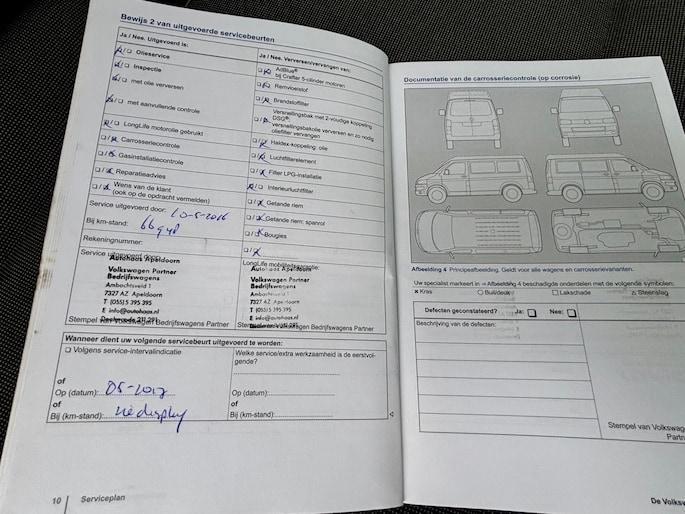 Bewijs 2 van uitgevoerde servicebeurten
Ja / Nee. Uitgevoerd is:
Olieservice
Inspectie
met olie verversen
met aanvullende controle
LongLife motorolie gebruikt
Carrosseriecontrole
Gasinstallatiecontrole
Reparatieadvies
Wens van de klant
(ook op de opdracht vermelden)
Service uitgevoerd door:
Bij km-stand:
Rekeningnummer:
Service uitgevoerd door:
Autohaas Apeldoorn
Volkswagen Partner
Bedrijfswagens
Ambachsveld 1
7327 AZ Apeldoorn
T (055) 5 395 395
E info@autohaas.nl
Stempel van Volkswagen Bedrijfswagens Partner
Ja / Nee. Verversen/vervangen van:
AdBlue®
bij Crafter 5-cilinder motoren
Remvloeistof
Brandstoffilter
Versnellingsbak met 2-voudige koppeling
DSG®:
versnellingsbakolie verversen en zo nodig
oliefilter vervangen
Haldex-koppeling: olie
Luchtfilterelement
Filter LPG-installatie
Interieurluchtfilter
Getande riem
Getande riem: spanrol
Bougies
LongLife mobiliteitsgarantie:
Autohaas Apeldoorn
Volkswagen Partner
Bedrijfswagens
Ambachsveld 1
7327 AZ Apeldoorn
T (055) 5 395 395
E info@autohaas.nl
Stempel van Volkswagen Bedrijfswagens Partner
Wanneer dient uw volgende servicebeurt uitgevoerd te worden:
Volgens service-intervalindicatie
of
Op (datum): 05-2017
of
Bij (km-stand):
Welke service/extra werkzaamheid is de eerstvol-
gende?
Op (datum):
of
Bij (km-stand):
10 Serviceplan
Documentatie van de carrosseriecontrole (op corrosie)
Afbeelding 4 Principeafbeelding. Geldt voor alle wagens en carrosserievarianten.
Uw specialist markeert in ⇒ Afbeelding 4 beschadigde onderdelen met de volgende symbolen:
× Kras ○ Buil/deuk □ Lakschade △ Steenslag
Defecten geconstateerd? Ja: Nee:
Beschrijving van de defecten:
Stempel van Volkswag
Partn
De Volksw